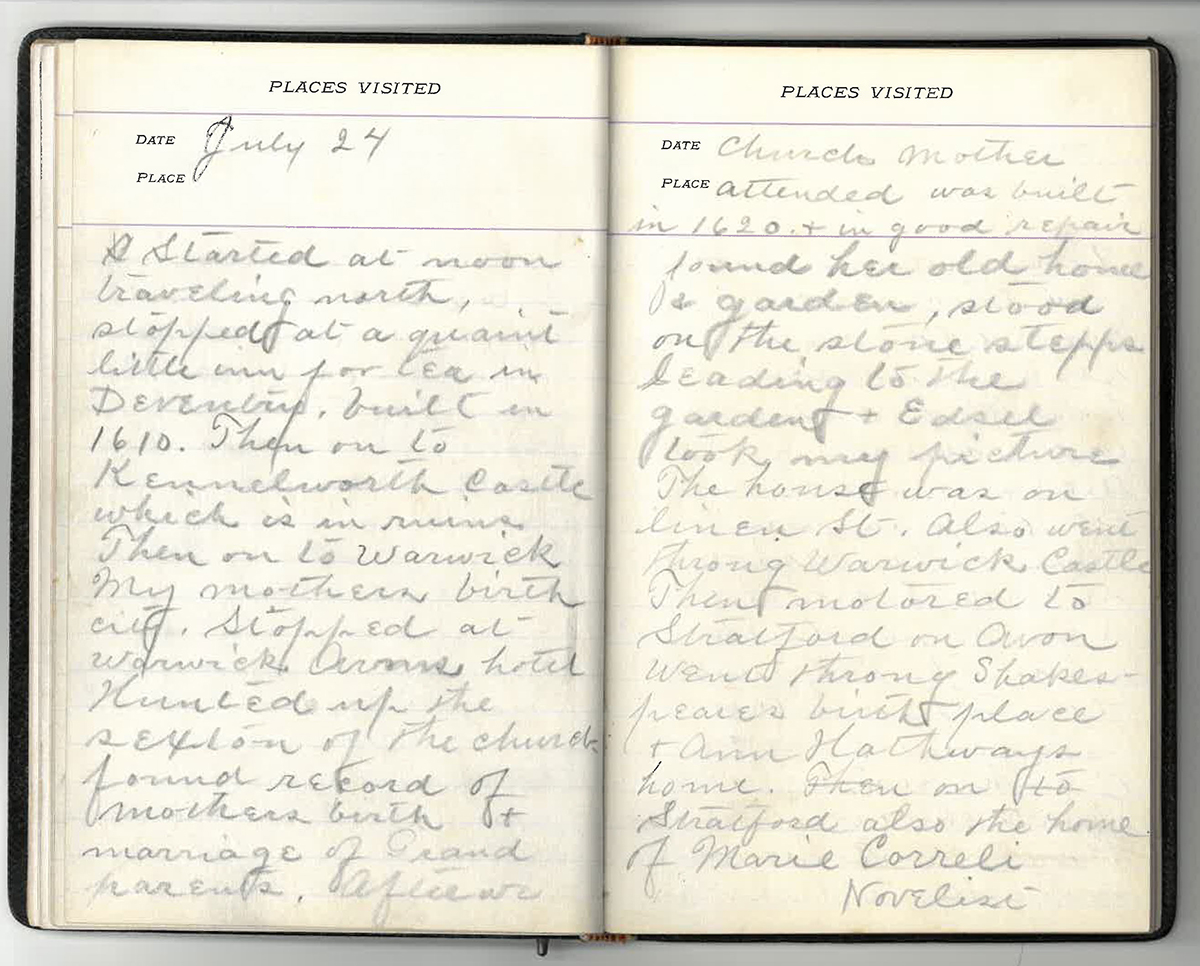 PLACES VISITED
DATE July 24
PLACE
Started at noon
traveling north,
stopped at a quaint
little inn for tea in
Deventry, built in
1610. Then on to
Kennelworth Castle
which is in ruins
Then on to Warwick
My mothers birth
city. Stopped at
Warwick Arms hotel
Hunted up the
sexton of the church
found record of
mothers birth +
marriage of Grand
parents. After we
PLACES VISITED
DATE Church Mother
PLACE attended was built
in 1620. + in good repair
found her old home
& garden, stood
on the stone stepps
leading to the
garden + Edsel
took my picture
The house was on
linen St. Also went
throng Warwick Castle
Then motored to
Stratford on Avon
Went throng Shakes-
peares birth place
+ Ann Hathways
home. Then on to
Stratford also the home
of Marie Correli
Novelist